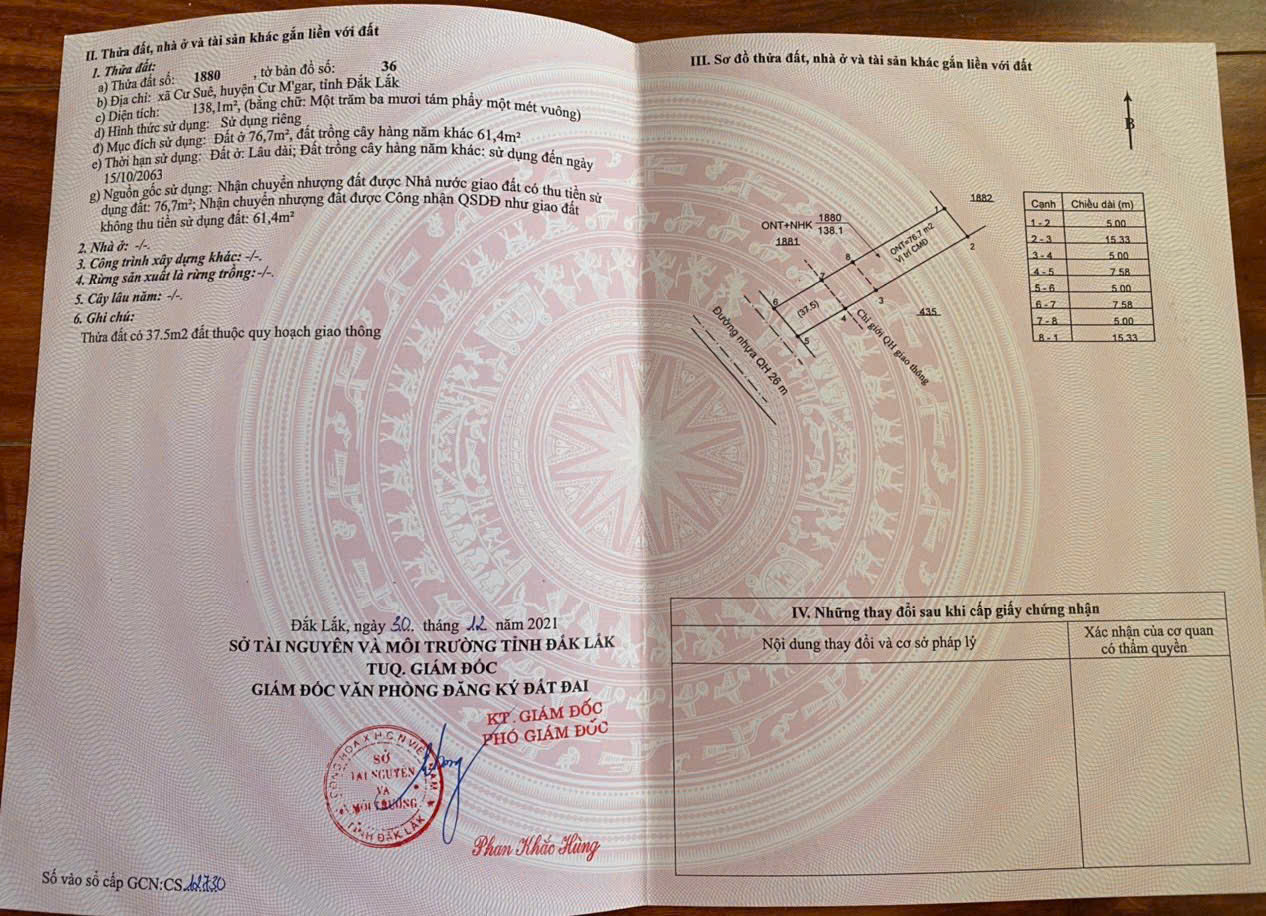 II. Thửa đất, nhà ở và tài sản khác gắn liền với đất
1. Thửa đất:
a) Thửa đất số: 1880 , tờ bản đồ số: 36
b) Địa chỉ: xã Cư Suê, huyện Cư M'gar, tỉnh Đắk Lắk
c) Diện tích: 138,1m², (bằng chữ: Một trăm ba mươi tám phẩy một mét vuông)
d) Hình thức sử dụng: Sử dụng riêng
đ) Mục đích sử dụng: Đất ở 76,7m², đất trồng cây hàng năm khác 61,4m²
e) Thời hạn sử dụng: Đất ở: Lâu dài; Đất trồng cây hàng năm khác: sử dụng đến ngày
15/10/2063
g) Nguồn gốc sử dụng: Nhận chuyển nhượng đất được Nhà nước giao đất có thu tiền sử
dụng đất: 76,7m²; Nhận chuyển nhượng đất được Công nhận QSDĐ như giao đất
không thu tiền sử dụng đất: 61,4m²
2. Nhà ở: -/-.
3. Công trình xây dựng khác: -/-.
4. Rừng sản xuất là rừng trồng: -/-.
5. Cây lâu năm: -/-.
6. Ghi chú:
Thửa đất có 37.5m2 đất thuộc quy hoạch giao thông
Đắk Lắk, ngày 30. tháng 12 năm 2021
SỞ TÀI NGUYÊN VÀ MÔI TRƯỜNG TỈNH ĐẮK LẮK
TUQ. GIÁM ĐỐC
GIÁM ĐỐC VĂN PHÒNG ĐĂNG KÝ ĐẤT ĐAI
KT. GIÁM ĐỐC
PHÓ GIÁM ĐỐC
CỘNG HÒA X.H.C.N VIỆT NAM
SỞ
TÀI NGUYÊN
VÀ
MÔI TRƯỜNG
TỈNH ĐẮK LẮK
Phan Khắc Hùng
Số vào sổ cấp GCN:CS.12730
III. Sơ đồ thửa đất, nhà ở và tài sản khác gắn liền với đất
B
1882
ONT+NHK 1880
138.1
1881
ONT=76.7 m2
Vị trí CMĐ
1
2
3
4
5
6
7
8
(37.5)
435
Chỉ giới QH giao thông
Đường nhựa QH 26 m
Cạnh Chiều dài (m)
1 - 2 5.00
2 - 3 15.33
3 - 4 5.00
4 - 5 7.58
5 - 6 5.00
6 - 7 7.58
7 - 8 5.00
8 - 1 15.33
IV. Những thay đổi sau khi cấp giấy chứng nhận
Nội dung thay đổi và cơ sở pháp lý
Xác nhận của cơ quan
có thẩm quyền